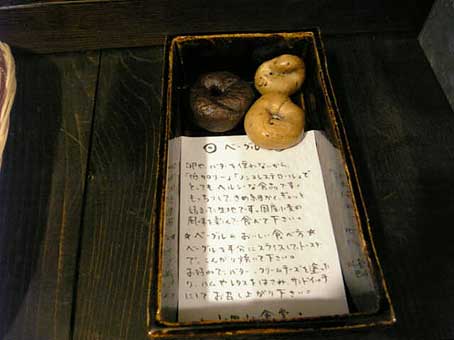 ベーグル
卵やバターを使わないから、
「低カロリー」「ノンコレステロール」で
とってもヘルシーな食品です。
もっちりして、きめ細かく、ぎゅっと
詰まった生地です。国産小麦の
風味を楽しんで食べて下さい。
★ベーグルのおいしい食べ方★
ベーグルを半分にスライスしてトースト
で、こんがり焼いて下さい。
お好みで、バター、クリームチーズを塗ったり
、ハムやレタスをはさみ、サンドイッチ
にしてお召し上がり下さい。
食堂